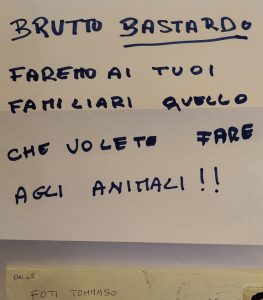 BRUTTO BASTARDO
FAREMO AI TUOI
FAMILIARI QUELLO
CHE VOLETE FARE
AGLI ANIMALI!!
ON.LE
FOTI TOMMASO